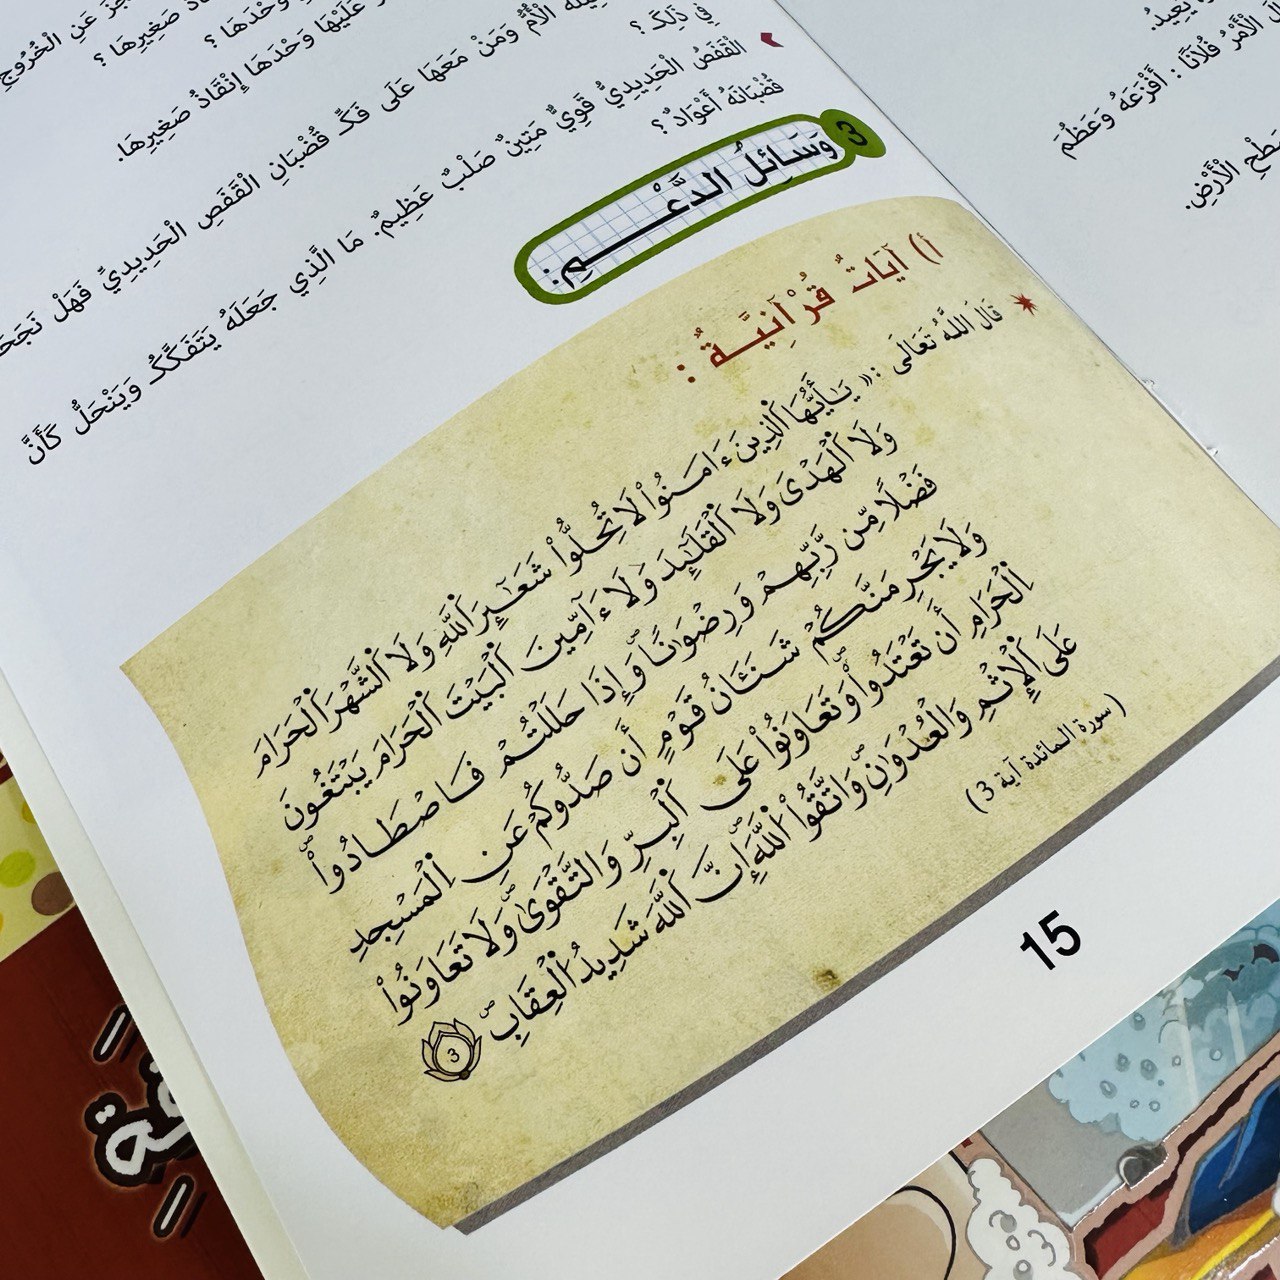 عَجَزَ عَنِ الْخُرُوجِ
صَغِيرِهَا ؟
وَحْدَهَا ؟
عَلَيْهَا وَحْدَهَا إِنْقَاذُ صَغِيرِهَا.
الْأُمُّ وَمَنْ مَعَهَا عَلَى فَكِّ قُضْبَانِ الْقَفَصِ الْحَدِيدِيِّ فَهَلْ نَجَحَ
فِي ذَلِكَ ؟
الْقَفَصُ الْحَدِيدِيُّ قَوِيٌّ مَتِينٌ صَلْبٌ عَظِيمٌ. مَا الَّذِي جَعَلَهُ يَتَفَكَّكُ وَيَنْحَلُّ كَأَنَّ
قُضْبَانَهُ أَعْوَادٌ ؟
3 وَسَائِلُ الدَّعْـــمِ:
أ) آيَاتٌ قُرْآنِيَّـةٌ :
قَالَ اللَّهُ تَعَالَى : « يَـٰٓأَيُّهَا ٱلَّذِينَ ءَامَنُوا۟ لَا تُحِلُّوا۟ شَعَـٰٓئِرَ ٱللَّهِ وَلَا ٱلشَّهْرَ ٱلْحَرَامَ
وَلَا ٱلْهَدْىَ وَلَا ٱلْقَلَـٰٓئِدَ وَلَا ءَآمِّينَ ٱلْبَيْتَ ٱلْحَرَامَ يَبْتَغُونَ
فَضْلًا مِّن رَّبِّهِمْ وَرِضْوَٰنًا وَإِذَا حَلَلْتُمْ فَاصْطَادُوا۟
وَلَا يَجْرِمَنَّكُمْ شَنَـَٔانُ قَوْمٍ أَن صَدُّوكُمْ عَنِ ٱلْمَسْجِدِ
ٱلْحَرَامِ أَن تَعْتَدُوا۟ وَتَعَاوَنُوا۟ عَلَى ٱلْبِرِّ وَالتَّقْوَىٰ وَلَا تَعَاوَنُوا۟
عَلَى ٱلْإِثْمِ وَالْعُدْوَٰنِ وَاتَّقُوا۟ ٱللَّهَ إِنَّ ٱللَّهَ شَدِيدُ ٱلْعِقَابِ 3
(سورة المائدة آية 3)
15
يُعِيدُ.
الْأَمْرُ فُلَانًا : أَفْزَعَهُ وَعَظُمَ
سَطْحِ الْأَرْضِ.